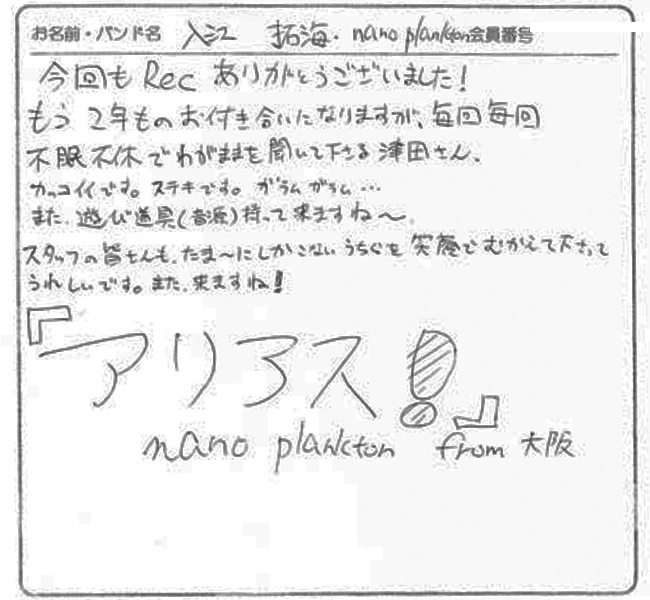 お名前・バンド名 入江 拓海・nano plankton会員番号
今回もRec ありがとうございました!
もう 2年ものお付き合いになりますが、毎回毎回
不眠不休でわがままを聞いて下さる津田さん、
カッコイイです。ステキです。ガラム ガラム…
また、遊び道具(音源)持って来ますね〜。
スタッフの皆さんも、たま〜にしかこないうちらを 笑顔でむかえて下さって
うれしいです。また、来ますね!
『アリアス!』
nano plankton from 大阪